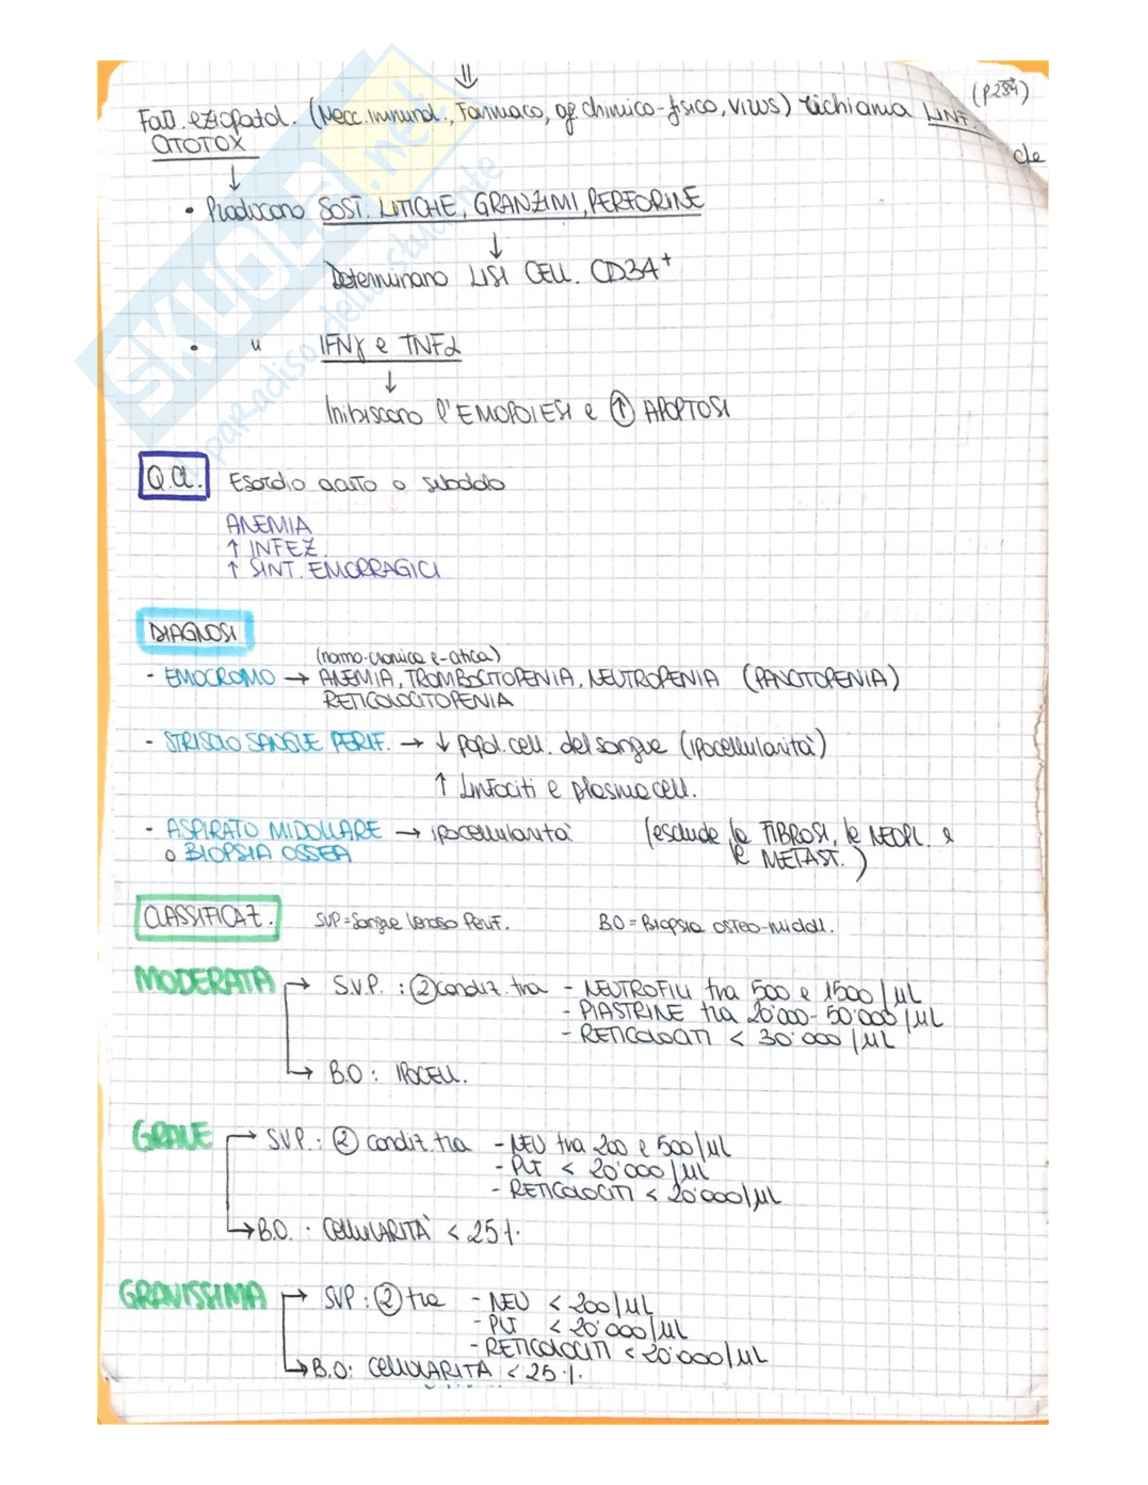 ⇓
(p284)
Fatt. eziopatol. (Mecc. immunol., Farmaco, ag. chimico-fisico, virus) richiama LINF.
CITOTOX che
↓
• Producono SOST. LITICHE, GRANZIMI, PERFORINE
↓
Determinano LISI CELL. CD34+
• " IFNγ e TNFα
↓
Inibiscono l'EMOPOIESI e ↑ APOPTOSI
Q.Cl. Esordio acuto o subdolo
ANEMIA
↑ INFEZ.
↑ SINT. EMORRAGICI
DIAGNOSI
(normo-cromica e -citica)
- EMOCROMO → ANEMIA, TROMBOCITOPENIA, NEUTROPENIA (PANCITOPENIA)
RETICOLOCITOPENIA
- STRISCIO SANGUE PERIF. → ↓ popol. cell. del sangue (ipocellularità)
↑ Linfociti e plasmacell.
- ASPIRATO MIDOLLARE → ipocellularità (esclude la FIBROSI, le NEOPL. e
o BIOPSIA OSSEA le METAST.)
CLASSIFICAZ. SVP = Sangue Venoso Perif. BO = Biopsia osteo-midoll.
MODERATA → S.V.P. : ② condiz. tra - NEUTROFILI tra 500 e 1500/μL
- PIASTRINE tra 20'000 - 50'000/μL
- RETICOLOCITI < 30'000/μL
→ B.O : IPOCELL.
GRAVE → S.V.P. : ② condiz. tra - NEU tra 200 e 500/μL
- PLT < 20'000/μL
- RETICOLOCITI < 20'000/μL
→ B.O. : CELLULARITÀ < 25%.
GRAVISSIMA → SVP : ② tra - NEU < 200/μL
- PLT < 20'000/μL
- RETICOLOCITI < 20'000/μL
→ B.O : CELLULARITÀ < 25%.
SKUOLA.net
paradiso dello studente